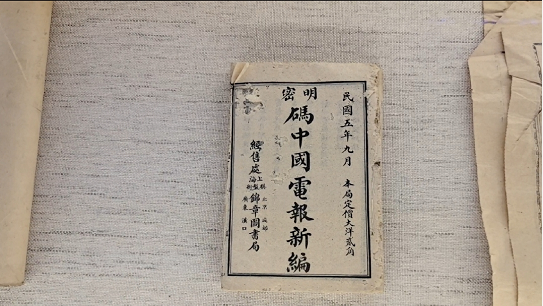 民國五年九月 本局定價大洋貳角
明密
碼中國電報新編
經售處 上海 錦章圖書局
廣東 漢口